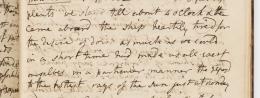 we stay'd till about 4 o'clock & then
came aboard the ship heartily tired for
the desire of doing as much as we could
in a short time had made us all exert
ourselves in a particular manner tho exposd
to the hottest rays of the sun just at noonday